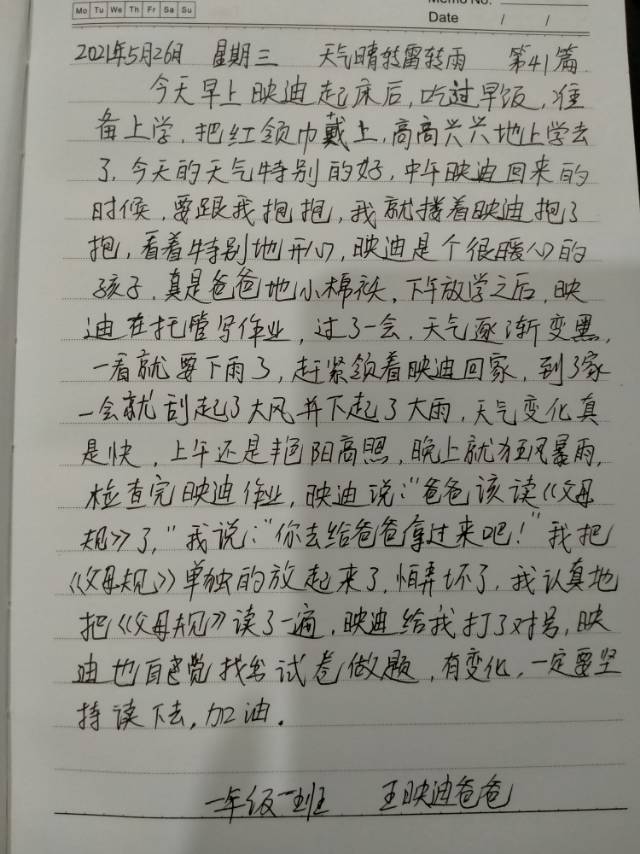 Mo Tu We Th Fr Sa Su
Memo No.
Date / /
2021年5月26日 星期三 天气晴转雷转雨 第41篇
今天早上映迪起床后,吃过早饭,准
备上学,把红领巾戴上,高高兴兴地上学去
了,今天的天气特别的好,中午映迪回来的
时候,要跟我抱抱,我就搂着映迪抱了
抱,看着特别地开心,映迪是个很暖心的
孩子,真是爸爸地小棉袄,下午放学之后,映
迪在托管写作业,过了一会,天气逐渐变黑,
一看就要下雨了,赶紧领着映迪回家,到了家
一会就刮起了大风并下起了大雨,天气变化真
是快,上午还是艳阳高照,晚上就狂风暴雨,
检查完映迪作业,映迪说:"爸爸该读《父母
规》了,"我说:"你去给爸爸拿过来吧!"我把
《父母规》单独的放起来了,怕弄坏了,我认真地
把《父母规》读了一遍,映迪给我打了对号,映
迪也自觉找出试卷做题,有变化,一定要坚
持读下去,加油。
一年级一班 王映迪爸爸